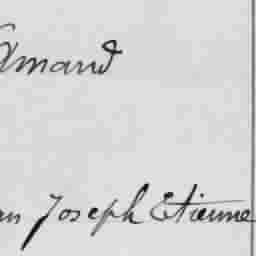 Amand
Joseph Etienne